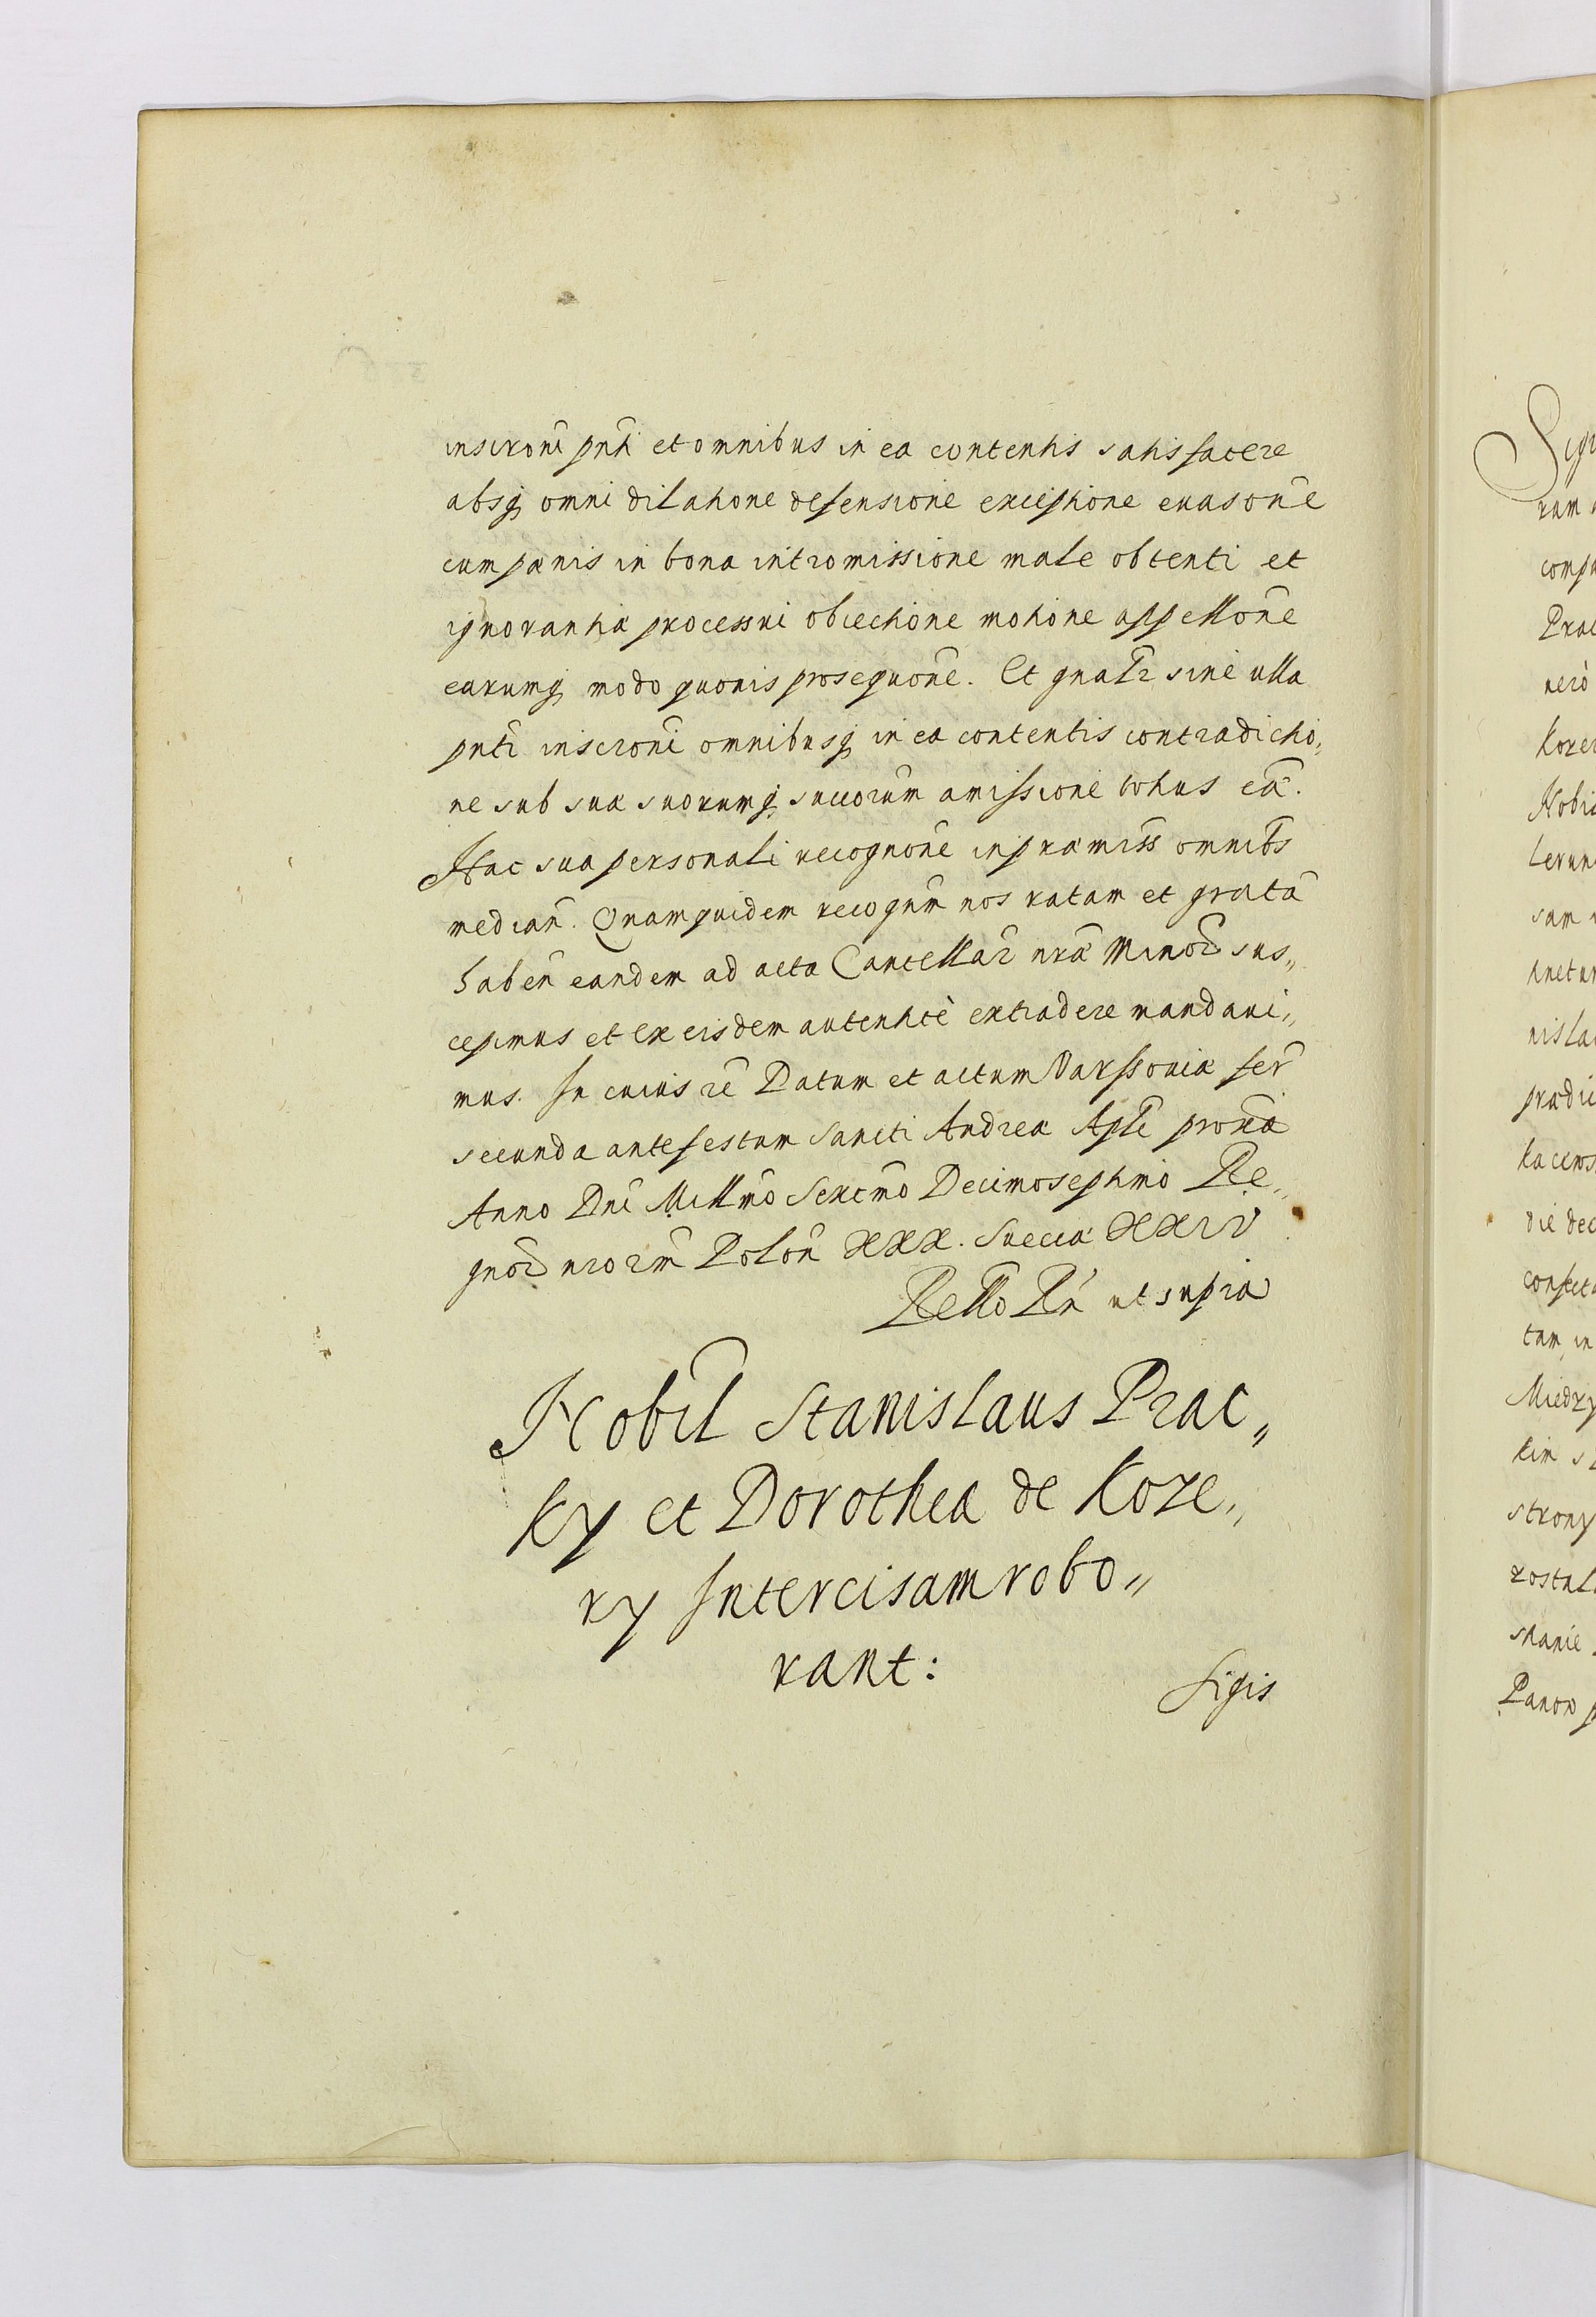 inscrōni pn̄ti et omnibus in ea contentis satisfacere
absq̨ omni dilatione defensione exceptione euasōne
cum pænis in bona intromissione male obtenti et
ignorantiæ processui obiectione motione appellōne
earumq̨ modo quouis prosequōne. Et gnalr̄ sine ulla
pnti inscrōni omnibusq̨ in ea contentis contradictio„
ne sub sua suorumq̨ succorūm amissione totius cā.
Hac sua personali recognōne in præmiss̄ omnibs̄
median̄. Quamquidem recognm̄ nos ratam et gratā
haben̄ eandem ad acta Cancellar̄ nr̄æ Minor̄ sus„
cepimus et ex eisdem autenticè extradere mandaui„
mus. In cuius rē Datum et actum Varssouiæ fer̄
secunda ante festum Sancti Andreæ Apli̅ proxīa
Anno Dn̄i Millm̄o Sexcm̄o Decimoseptimo Re„
gnor̄ nrorm̄ Polon̄ XXX. Sueciæ XXIV
Rello Rn̄ ut supra
Nobil̄ Stanislaus Prac„
ky et Dorothea de Koze„
ry Intercisam robo„
rant:
Sigis
Sigi
rum
compa
Prac
uerò
Kozer
Nobi
lerun
sam
nisla
prædic
die dec
confect
tam in
Miedzy
kim s
strony
zostal
skanie
Panow p